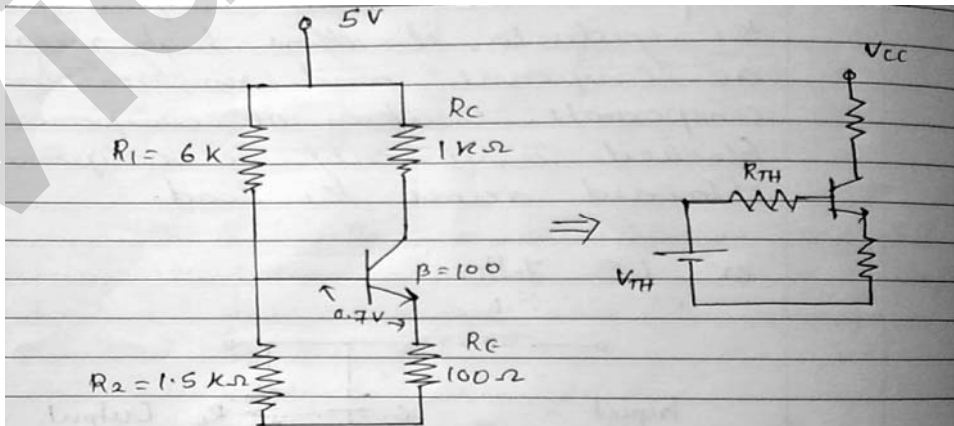 5V
RC
R1 = 6K
1KΩ
β=100
0.7V
RE
R2 = 1.5 KΩ
100Ω
⇒
VCC
RTH
VTH